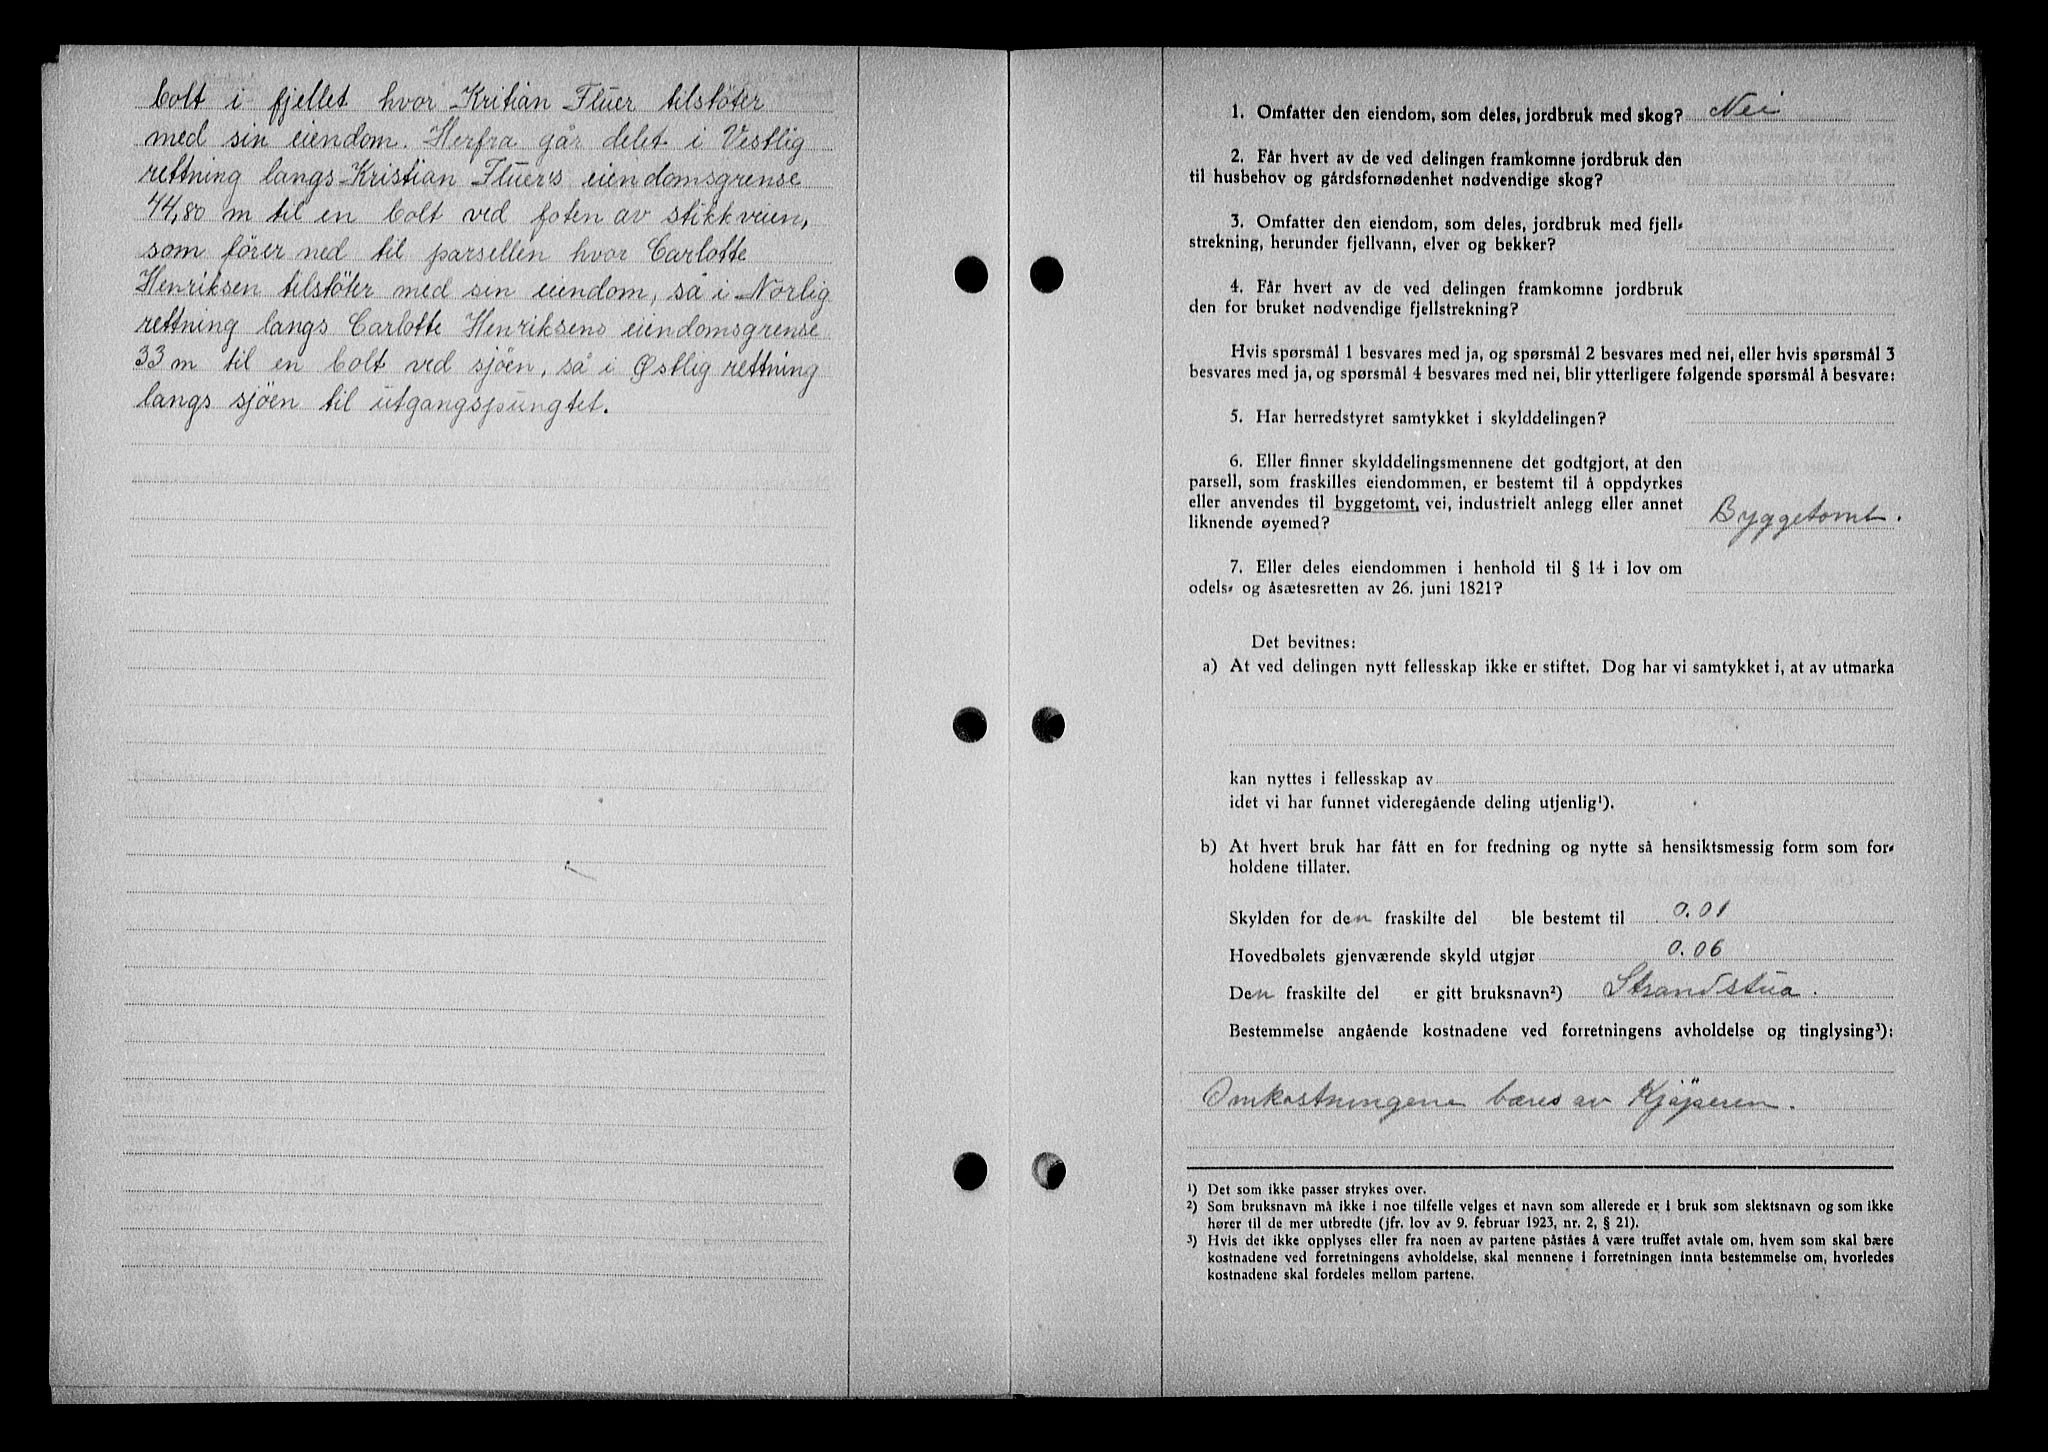 bolt i fjellet hvor Kritian Fluer tilstöter
med sin eiendom. Herfra går delet i Vestlig
rettning langs Kristian Fluer's eiendomsgrense
44,80 m til en bolt ved foten av stikkveien,
som förer ned til parsellen hvor Carlotte
Henriksen tilstöter med sin eiendom, så i Norlig
rettning langs Carlotte Henriksens eiendomsgrense
33 m til en bolt ved sjöen, så i Østlig rettning
langs sjöen til utgangspungtet.
1. Omfatter den eiendom, som deles, jordbruk med skog? Nei
2. Får hvert av de ved delingen framkomne jordbruk den
til husbehov og gårdsfornødenhet nødvendige skog?
3. Omfatter den eiendom, som deles, jordbruk med fjell-
strekning, herunder fjellvann, elver og bekker?
4. Får hvert av de ved delingen framkomne jordbruk
den for bruket nødvendige fjellstrekning?
Hvis spørsmål 1 besvares med ja, og spørsmål 2 besvares med nei, eller hvis spørsmål 3
besvares med ja, og spørsmål 4 besvares med nei, blir ytterligere følgende spørsmål å besvare:
5. Har herredstyret samtykket i skylddelingen?
6. Eller finner skylddelingsmennene det godtgjort, at den
parsell, som fraskilles eiendommen, er bestemt til å oppdyrkes
eller anvendes til byggetomt, vei, industrielt anlegg eller annet
liknende øyemed? Byggetomt.
7. Eller deles eiendommen i henhold til § 14 i lov om
odels- og åsætesretten av 26. juni 1821?
Det bevitnes:
a) At ved delingen nytt fellesskap ikke er stiftet. Dog har vi samtykket i, at av utmarka
kan nyttes i fellesskap av
idet vi har funnet videregående deling utjenlig¹).
b) At hvert bruk har fått en for fredning og nytte så hensiktsmessig form som for-
holdene tillater.
Skylden for den fraskilte del ble bestemt til 0.01
Hovedbølets gjenværende skyld utgjør 0.06
Den fraskilte del er gitt bruksnavn²) Strandstua.
Bestemmelse angående kostnadene ved forretningens avholdelse og tinglysing³):
Omkostningene bæres av Kjöperen.
¹) Det som ikke passer strykes over.
²) Som bruksnavn må ikke i noe tilfelle velges et navn som allerede er i bruk som slektsnavn og som ikke
hører til de mer utbredte (jfr. lov av 9. februar 1923, nr. 2, § 21).
³) Hvis det ikke opplyses eller fra noen av partene påståes å være truffet avtale om, hvem som skal bære
kostnadene ved forretningens avholdelse, skal mennene i forretningen innta bestemmelse om, hvorledes
kostnadene skal fordeles mellom partene.